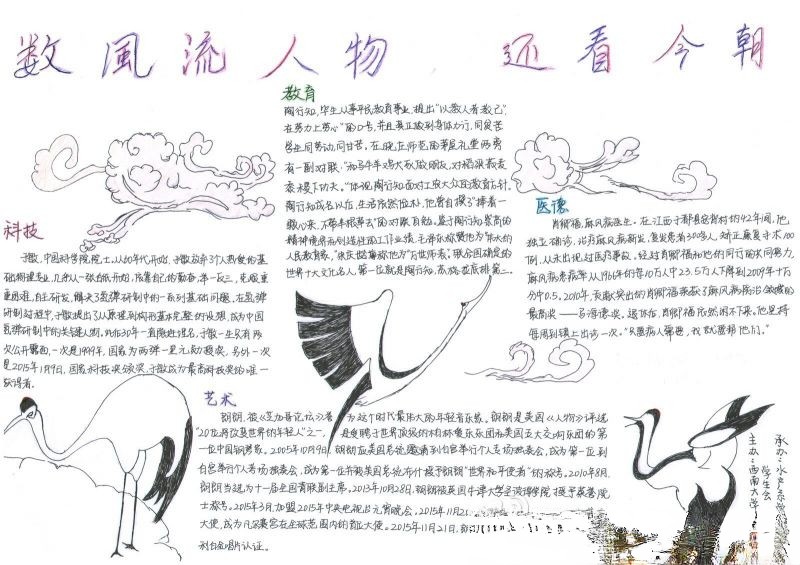 数風流人物 还看今朝
教育
陶行知,毕生从事平民教育事业,提出“以教人者教己”,
在劳力上劳心”的口号,并且真正做到身体力行,同晓苦
学生同劳动同甘苦。在晓庄师范的犁宫礼堂两旁
有一副对联:“和马牛羊鸡犬豕做朋友,对稻粱菽麦
黍稷下功夫。”体现陶行知面对工农大众的教育方针。
陶行知成名以后,生活依然俭朴,他曾自撰了“捧着一
颗心来,不带半根草去”的对联自勉。鉴于陶行知崇高的
精神境界
人民教育家,”宋庆龄尊称他为“万世师表”,联合国确定的
世界十大文化名人,第一位就是陶行知,
科技
于敏,中国科学院院士,从60年代开始,于敏放弃了热爱的基
础物理专业,几乎从一张白纸开始,依靠自己的勤奋,举一反三,克服重
重困难,自主研发,解决了氢弹研制中的一系列基础问题,在氢弹
研制过程中,于敏提出了从原理到构形基本完整的设想,成为中国
氢弹研制中的关键人物。此后30年一直隐姓埋名,于敏一生只有两
次公开露面,一次是1999年,国家为两弹一星元勋颁奖,另外一次
是2015年1月9日,国家科技奖颁奖,于敏成为最高科技奖的唯一
获得者。
医德
肖卿福,麻风病医生。在江西于都县
独立确诊、治疗麻风病新发、复发患者300多人,矫正康复手术100
例,从未出现过医疗事故。经过肖卿福和他的同行的共同努力,
麻风病患病率从1965年的每10万人中23.5万人下降到2009年十万
分中0.5。2010年,贡献突出的肖卿福获得了麻风病防治领域的
最高奖——马海德奖。退休后,肖卿福依然闲不下来。他坚持
每周到镇上出诊一次。“只要病人需要,我就要帮他们。”
艺术
朗朗,被《芝加哥论坛》誉为这个时代最伟大的年轻音乐家。朗朗是美国《人物》评选
“20位将改变世界的年轻人”之一,是受聘于世界顶级的柏林爱乐乐团和美国五大交响乐团的第
一位中国钢琴家。2005年10月9日,朗朗应美国总统邀请到白宫举行个人专场演奏会,成为第一位到
白宫举行个人专场独奏会,成为第一位并被美国总统布什授予朗朗“世界和平使者”的称号。2010年8月,
朗朗当选为十一届全国青联副主席。2013年10月28日,朗朗被英国牛津大学圣彼得学院授予荣誉院
士称号。2015年3月,加盟2015年中央电视台元宵晚会。2015年11月21
大使,成为凡尔赛宫在全球范围内的首位大使。2015年11月21日,
到白金唱片认证。
承办:水产系学
学生会
主办:西南大学